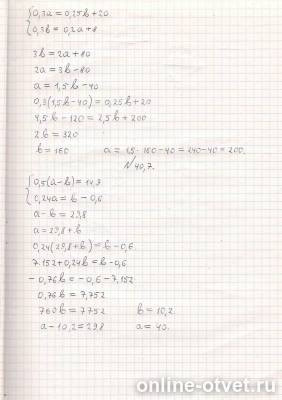 {0,3a = 0,25в + 20
{0,3в = 0,2a + 8
3в = 2a + 80
2a = 3в - 80
a = 1,5в - 40
0,3(1,5в - 40) = 0,25в + 20
4,5в - 120 = 2,5в + 200
2в = 320
в = 160 a = 1,5 · 160 - 40 = 240 - 40 = 200.
№40,7.
{0,5(a - в) = 14,9
{0,24a = в - 0,6
a - в = 29,8
a = 29,8 + в
0,24(29,8 + в) = в - 0,6.
7.152 + 0,24в = в - 0,6
- 0,76в = - 0,6 - 7,152
0,76в = 7,752
760в = 7752 в = 10,2.
a - 10,2 = 29,8 a = 40.
online-otvet.ru